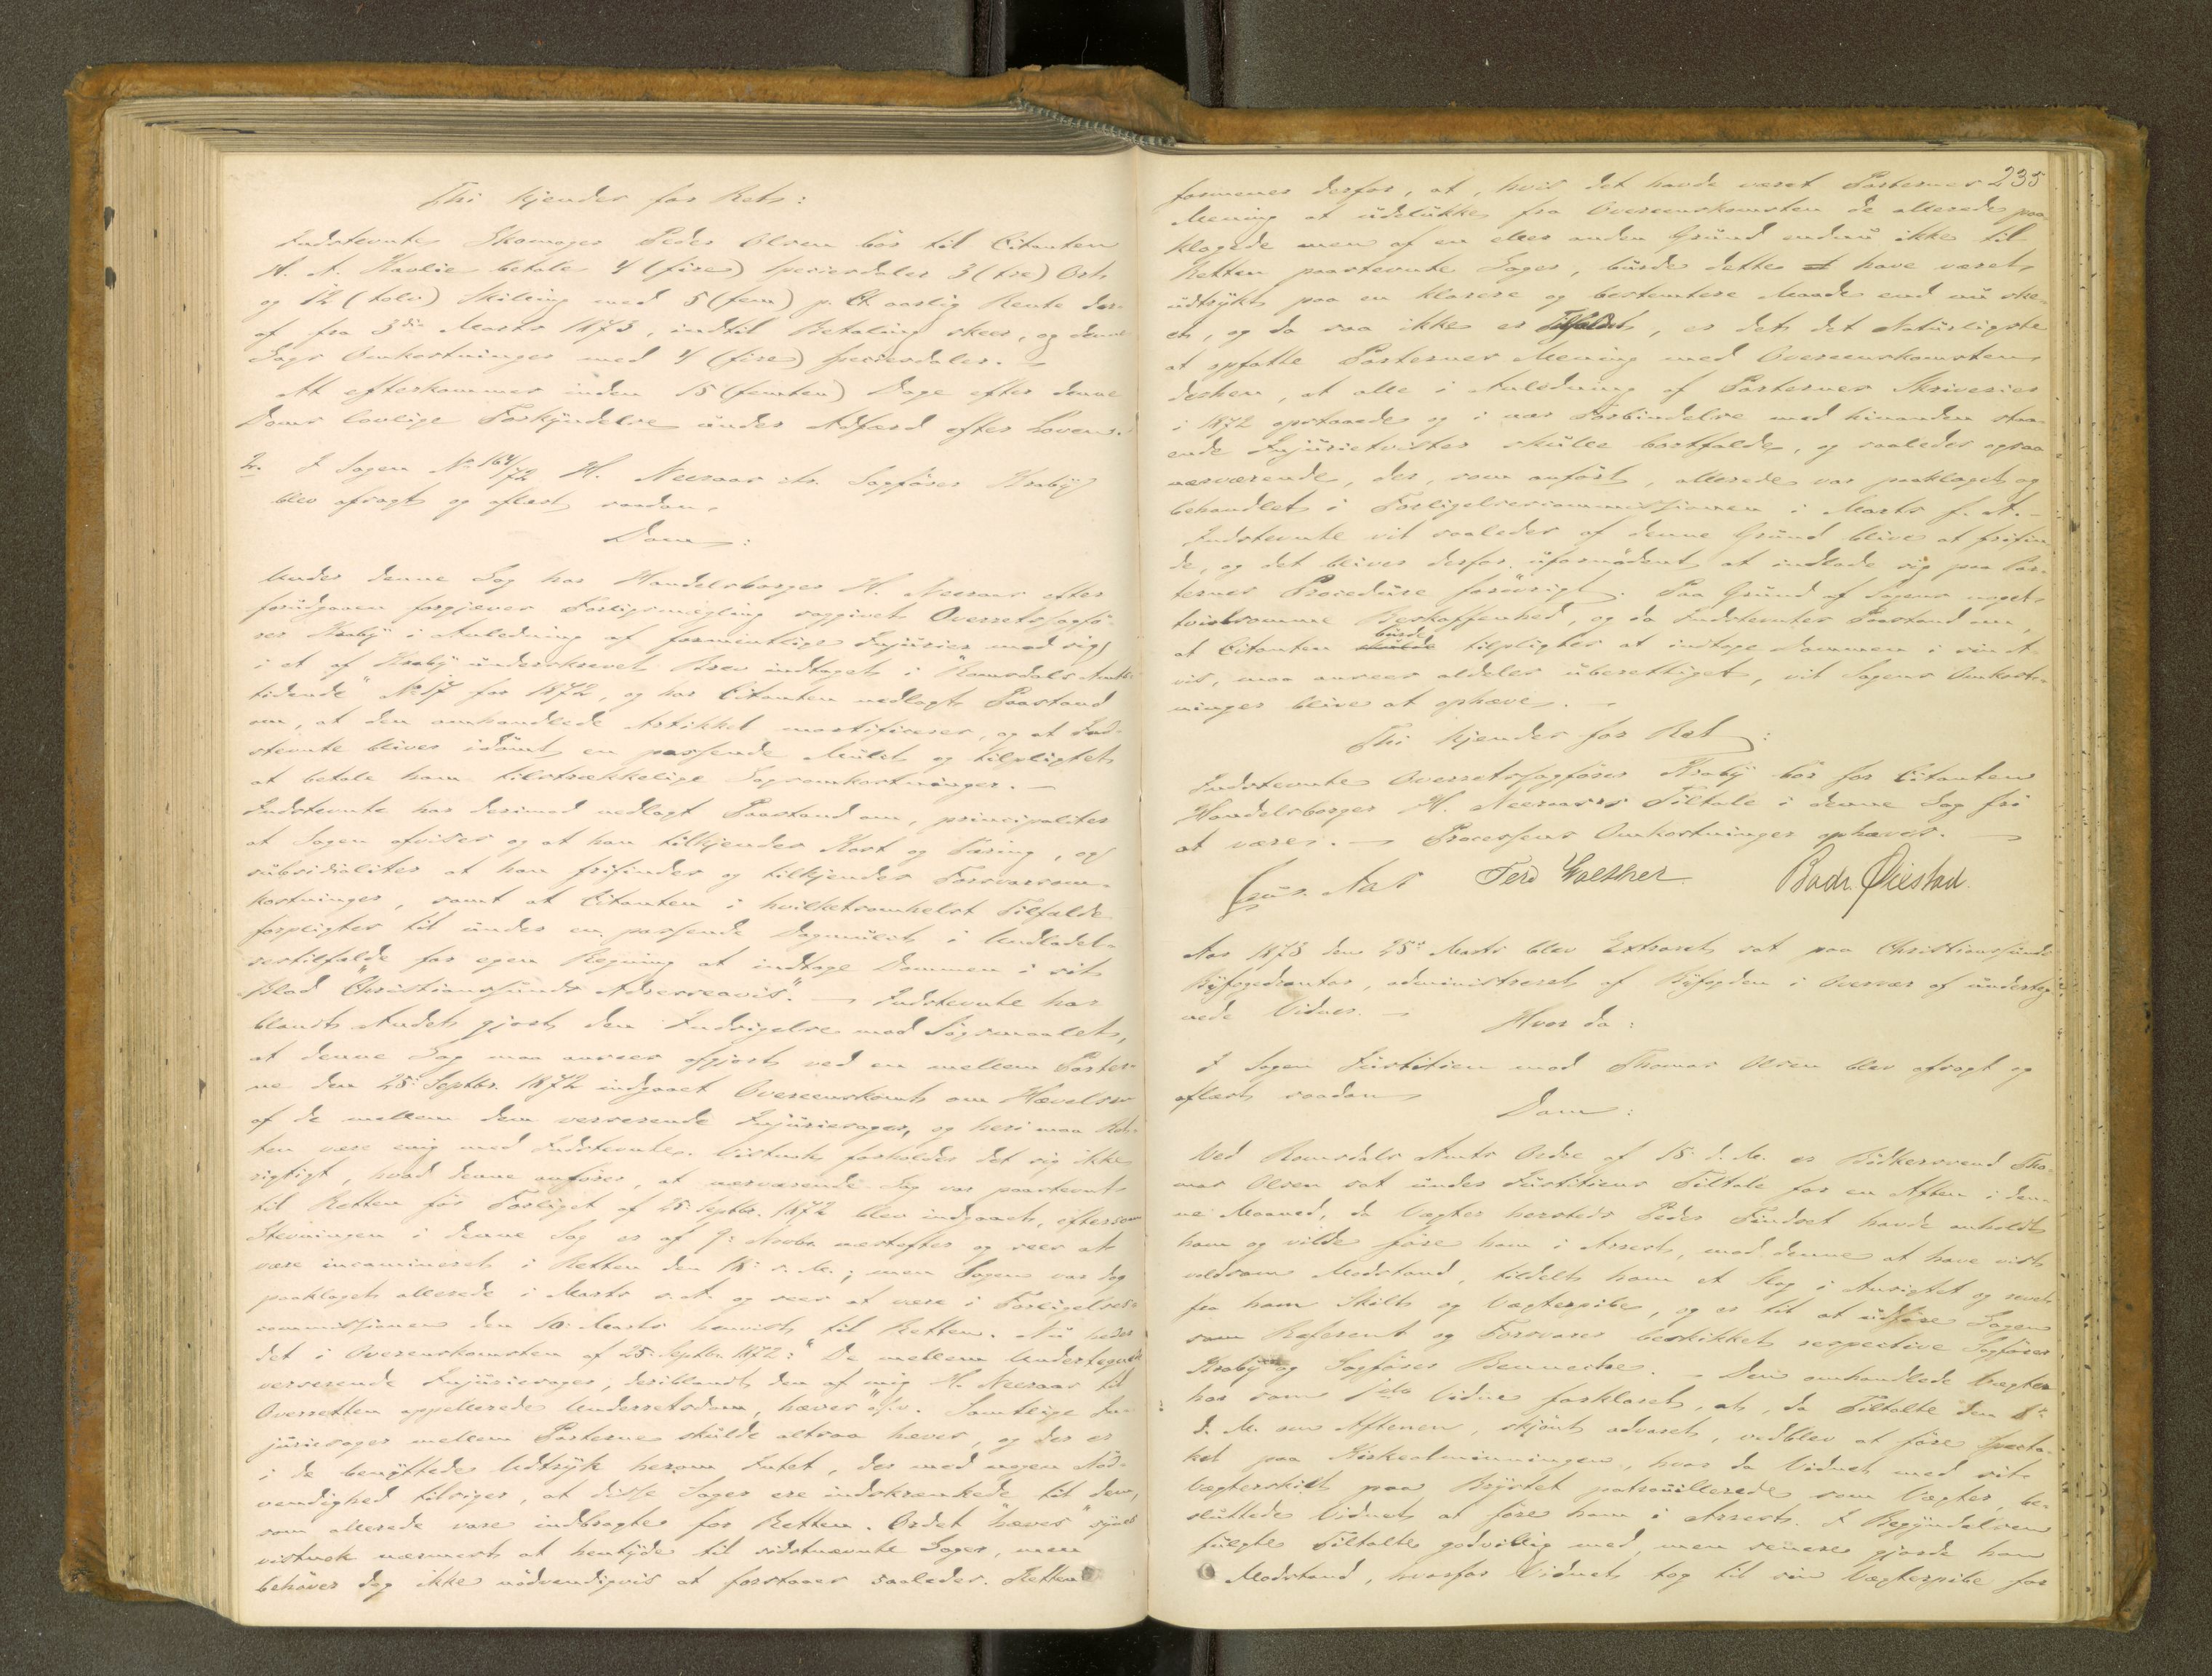 Thi kjendes for Ret:
Indstevnte Skomager Peder Olsen bör til Citanten
A. A. Havlie betale 4 (fire) Speciesdaler 3 (tre) Ort
og 12 (tolv) Skilling med 5 (fem) p. Ct. aarlig Rente der-
af fra 3die Marts 1873, indtil Betaling skeer, og denne
Sags Omkostninger med 4 (fire) Speciesdaler. –
At efterkommes inden 15 (femten) Dage efter denne
Doms lovlige Forkyndelse under Adfærd efter Loven.
2. I Sagen No 164/72 H. Neeraas ctr. Sagförer Kraby
blev afsagt og aflæst saadan
Dom:
Under denne Sag har Handelsborger H. Neeraas efter
forudgaaen forgjæves Forligsmægling saggivet Overretssagfö-
rer Kraby i Anledning af formentlige Injurier mod sig
i et af Kraby underskrevet Brev indtaget i "Romsdals Amts-
tidende" No 17 for 1872, og har Citanten nedlagt Paastand
om, at den omhandlede Artikkel mortificeres, og at Ind-
stevnte bliver idömt en passende Mulct og tilpligtet
at betale ham tilstrækkelige Sagsomkostninger. –
Indstevnte har derimod nedlagt Paastand om, principaliter
at Sagen afvises og at han tilkjendes Kost og Tæring, og
subsidialiter at han frifindes og tilkjendes Forsvarsom-
kostninger, samt at Citanten i hvilketsomhelst Tilfælde
forpligtes til under en passende Dagmulct i Undladel-
sestilfælde for egen Regning at indtage Dommen i sit
Blad "Christianssunds Adresseavis". – Indstevnte har
blandt Andet gjort den Indsigelse mod Sögsmaalet,
at denne Sag maa ansees afgjort ved en mellem Parter-
ne den 25. Septbr. 1872 indgaaet Overeenskomst om Hævelse
af de mellem dem verserende Injuriesager, og heri maa Ret-
ten være enig med Indstevnte. Vistnok forholder det sig ikke
rigtigt, hvad denne anförer, at nærværende Sag var paastevnt
til Retten för Forliget af 25. Septbr. 1872 blev indgaaet, eftersom
Stevningen i denne Sag er af 9. Novbr. næstefter og sees at
være incamineret i Retten den 18. s. M.; men Sagen var dog
paaklaget allerede i Marts s. A. og sees at være i Forligelses-
commissionen den 10. Marts henvist til Retten. Nu heder
det i Overenskomsten af 25. Septbr. 1872: "De mellem Undertegnede
verserende Injuriesager, deriblandt den af mig H. Neeraas til
Overretten appellerede Underretsdom, hæves" o.s.v. Samtlige In-
juriesager mellem Parterne skulde altsaa hæves, og der er
i de benyttede Udtryk herom Intet, der med nogen Nöd-
vendighed tilsiger, at disse Sager ere indskrænkede til dem,
som allerede vare indbragte for Retten. Ordet "hæves" synes
vistnok nærmest at hentyde til sidstnævnte Sager, men
behöver dog ikke nödvendigvis at forstaaes saaledes. Retten
235
formener derfor, at, hvis det havde været Parternes
Mening at udelukke fra Overeenskomsten de allerede paa-
klagede men af en eller anden Grund endnu ikke til
Retten paastevnte Sager, burde dette have været
udtrykt paa en klarere og bestemtere Maade end nu ske-
et, og da saa ikke er Tilfældet, er det det Naturligste
at opfatte Parternes Mening med Overeenskomsten
derhen, at alle i Anledning af Parternes Skriverier
i 1872 opstaaede og i nær Forbindelse med hinanden staa-
ende Injurietvister skulle bortfalde, og saaledes ogsaa
nærværende, der, som anfört, allerede var paaklaget og
behandlet i Forligelsescommissionen i Marts f. A. –
Indstevnte vil saaledes af denne Grund blive at frifin-
de, og det bliver derfor ufornödent at indlade sig paa Par-
ternes Procedure forövrigt. Paa Grund af Sagens noget
tvivlsomme Beskaffenhed, og da Indstevntes Paastand om,
at Citanten burde tilpligtes at indtage Dommen i sin A-
vis, maa ansees aldeles uberettiget, vil Sagens Omkost-
ninger blive at ophæve. –
Thi kjendes for Ret:
Indstevnte Overretssagförer Kraby bör for Citanten
Handelsborger H. Neeraas's Tiltale i denne Sag fri
at være. – Processens Omkostninger ophæves. –
Ferd Gaesher Badr. Öiestad.
Aar 1873 den 25de Marts blev Extraret sat paa Christianssunds
Byfogedcontor, administreret af Byfogden i Overvær af underteg-
nede Vidner. –
Hvor da:
I Sagen Justitien mod Thomas Olsen blev afsagt og
aflæst saadan
Dom:
Ved Romsdals Amts Ordre af 15. d. M. er Bödkersvend Tho-
mas Olsen sat under Justitiens Tiltale for en Aften i den-
ne Maaned, da Vægter hersteds Peder Tindset havde anholdt
ham og vilde före ham i Arrest, mod denne at have vist
voldsom Modstand, tildelt ham et Slag i Ansigtet og revet
fra ham Skilt og Vægterpibe, og er til at udföre Sagen
som Referent og Forsvarer beskikket respective Sagförer
Kraby og Sagförer Bennecke. – Den omhandlede Vægter
har som 1ste Vidne forklaret, at, da Tiltalte den 8de
d. M. om Aftenen, skjönt advaret, vedblev at före Specta-
kel paa Kirkealmenningen, hvor da Vidnet med sit
Vægterskilt paa Brystet patrouillerede som Vægter, be-
sluttede Vidnet at före ham i Arrest. I Begyndelsen
fulgte Tiltalte godvillig med, men senere gjorde han
Modstand, hvorfor Vidnet tog til sin Vægterpibe for